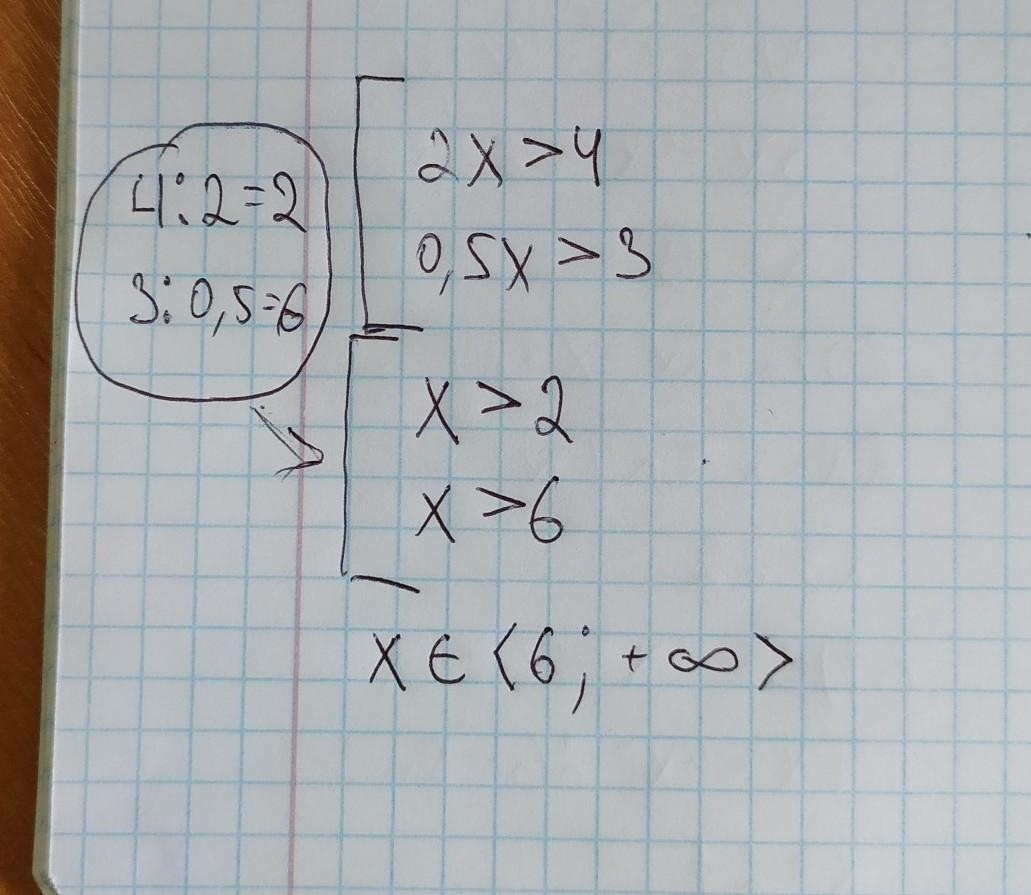 4:2=2
3:0,5=6
2x>4
0,5x>3
x>2
x>6
x∈<6;+∞>